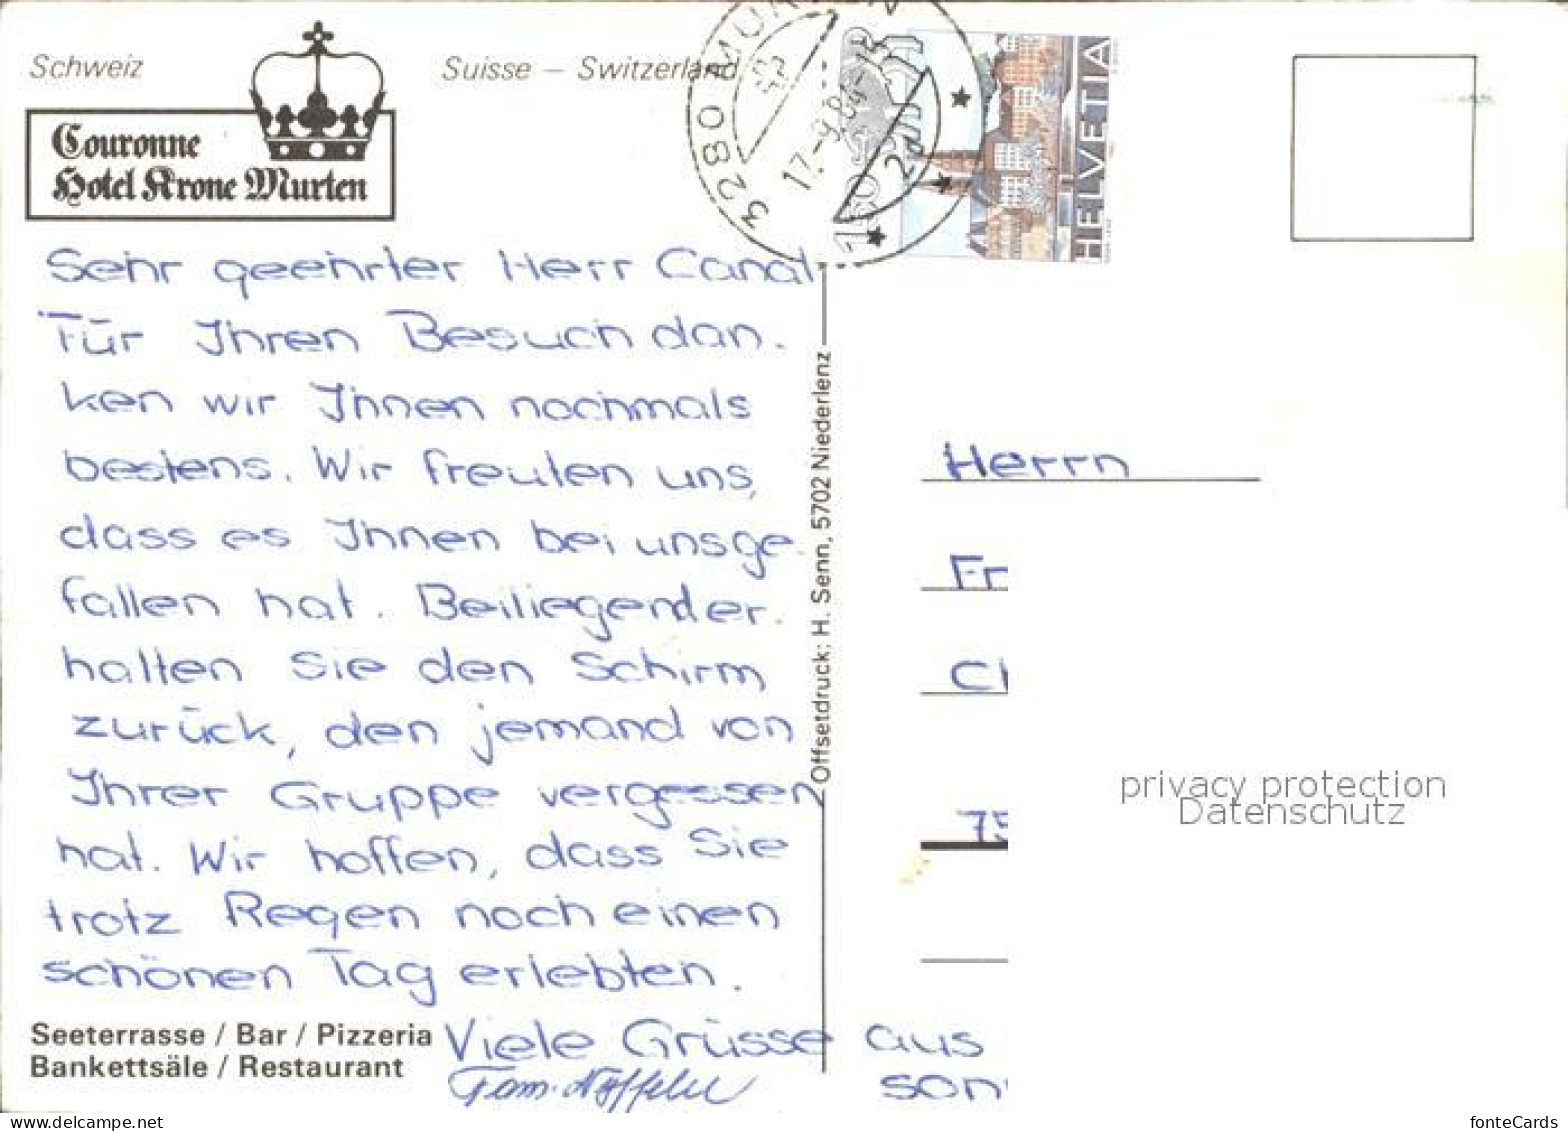 Schweiz
Suisse – Switzerland
Couronne
Hotel Krone Murten
3280 MURTEN
17.-9.84-
HELVETIA
Sehr geehrter Herr Canal
Für Ihren Besuch dan-
ken wir Ihnen nochmals
bestens. Wir freuten uns,
dass es Ihnen bei uns ge-
fallen hat. Beiliegend er-
halten Sie den Schirm
zurück, den jemand von
Ihrer Gruppe vergessen
hat. Wir hoffen, dass Sie
trotz Regen noch einen
schönen Tag erlebten.
Viele Grüsse aus
Fam.
Seeterrasse / Bar / Pizzeria
Bankettsäle / Restaurant
Offsetdruck: H. Senn, 5702 Niederlenz
Herrn
Fr
75
privacy protection
Datenschutz
www.delcampe.net
fonteCards